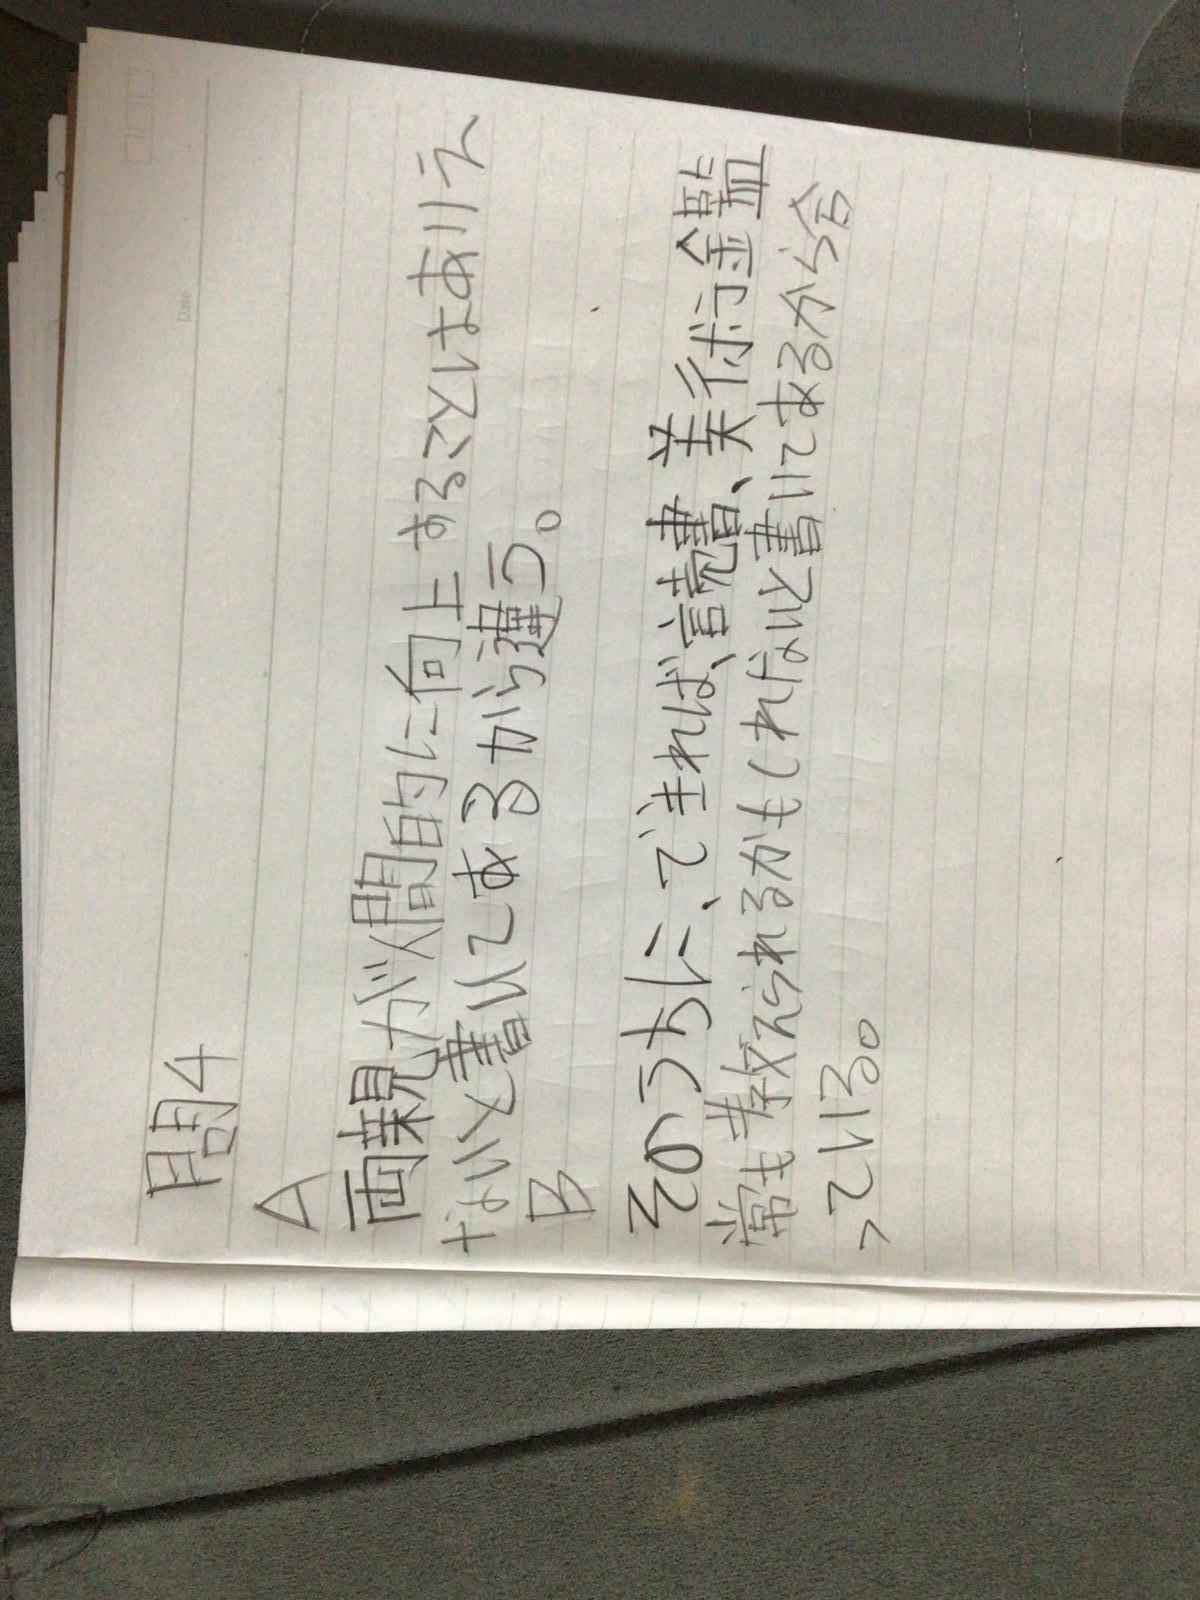 Date
問4
A
両親が人間的に向上することはありえ
ないと書いてあるから違う。
B
そのうちに、できれば、読書、美術鑑
賞も教えられるかもしれないと書いてあるから合
っている。